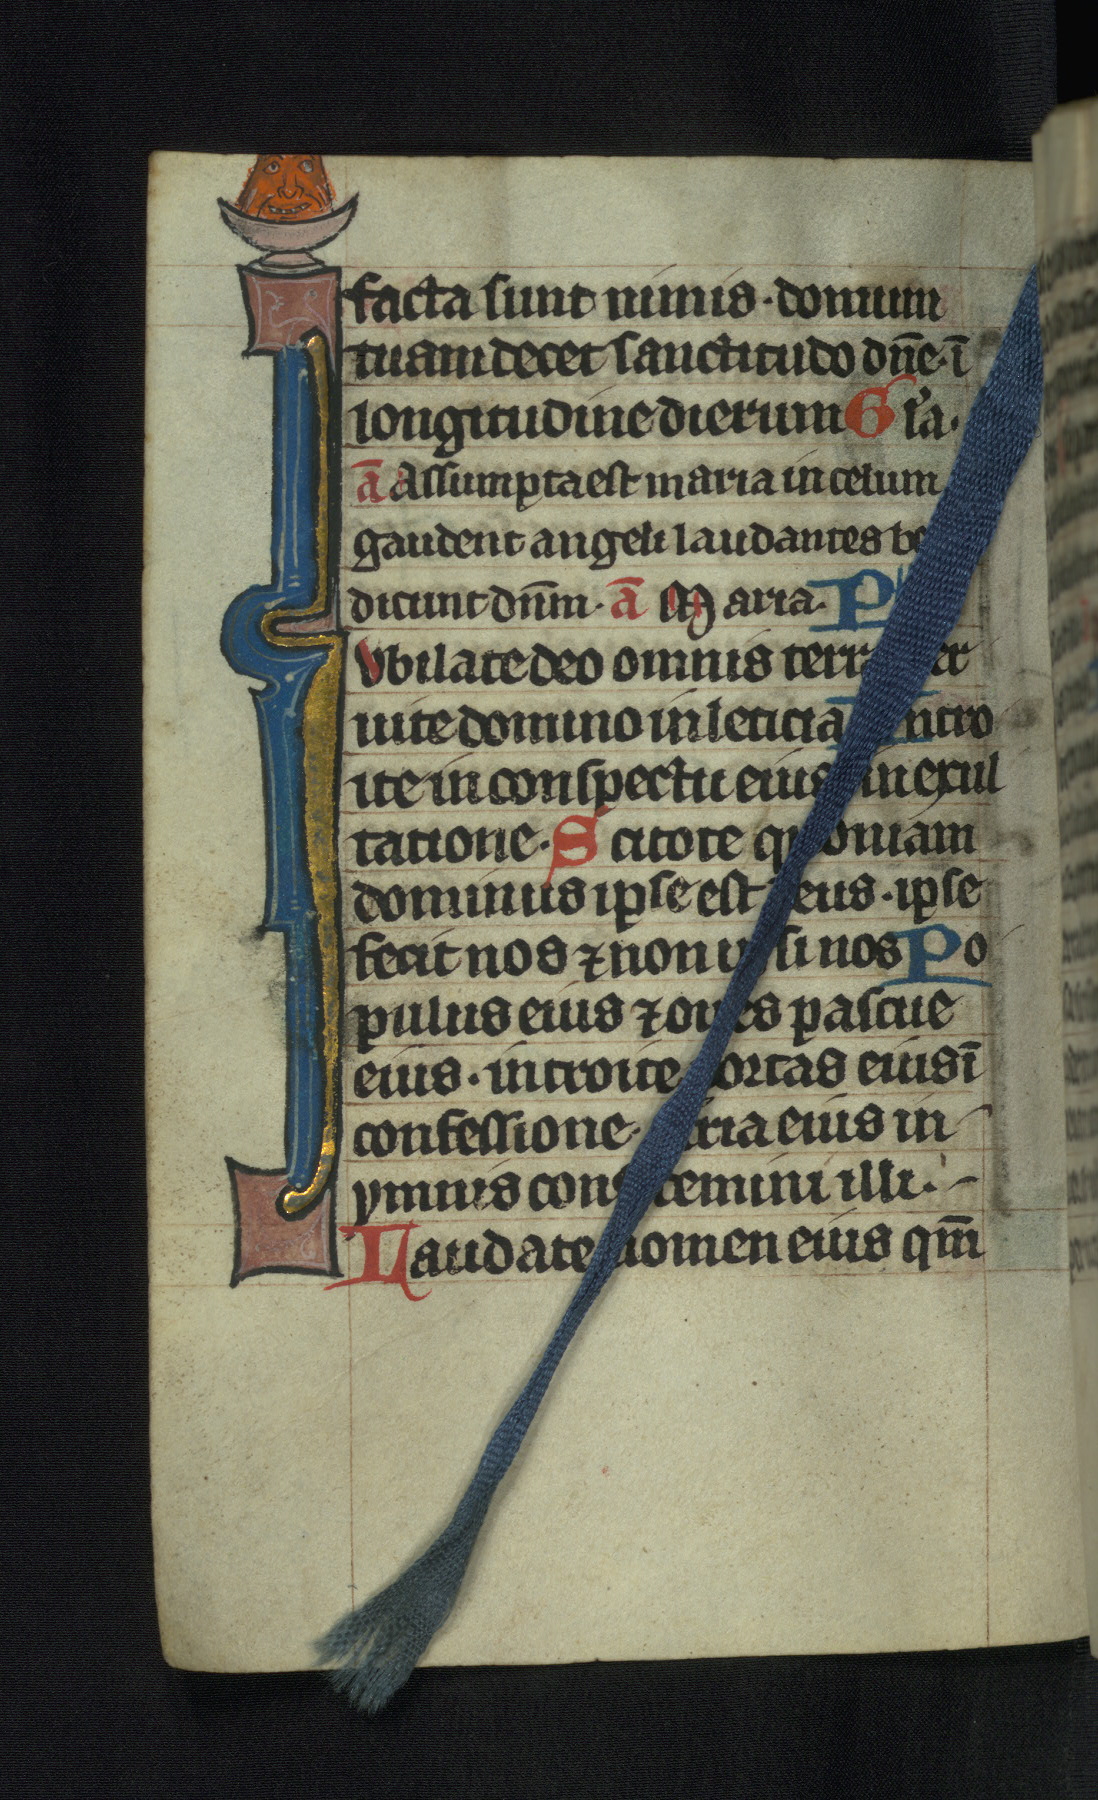 facta sunt nimis · domum
tuam decet sanctitudo dn̄e · ī
longitudine dierum Gl'a ·
ā Assumpta est maria in celum
gaudent angeli laudantes be
dicunt dn̄m · ā Maria · P
Vbilate deo omnis terra
uite domino in leticia ntro
ite in conspectu eius in exul
tatione · Scitote quoniam
dominus ipse est deus · ipse
fecit nos ⁊ non ipsi nos Po
pulus eius ⁊ oues pascue
eius · introite portas eius ī
confessione · atria eius in
ymnis confitemini illi ·
Laudate nomen eius qm̄